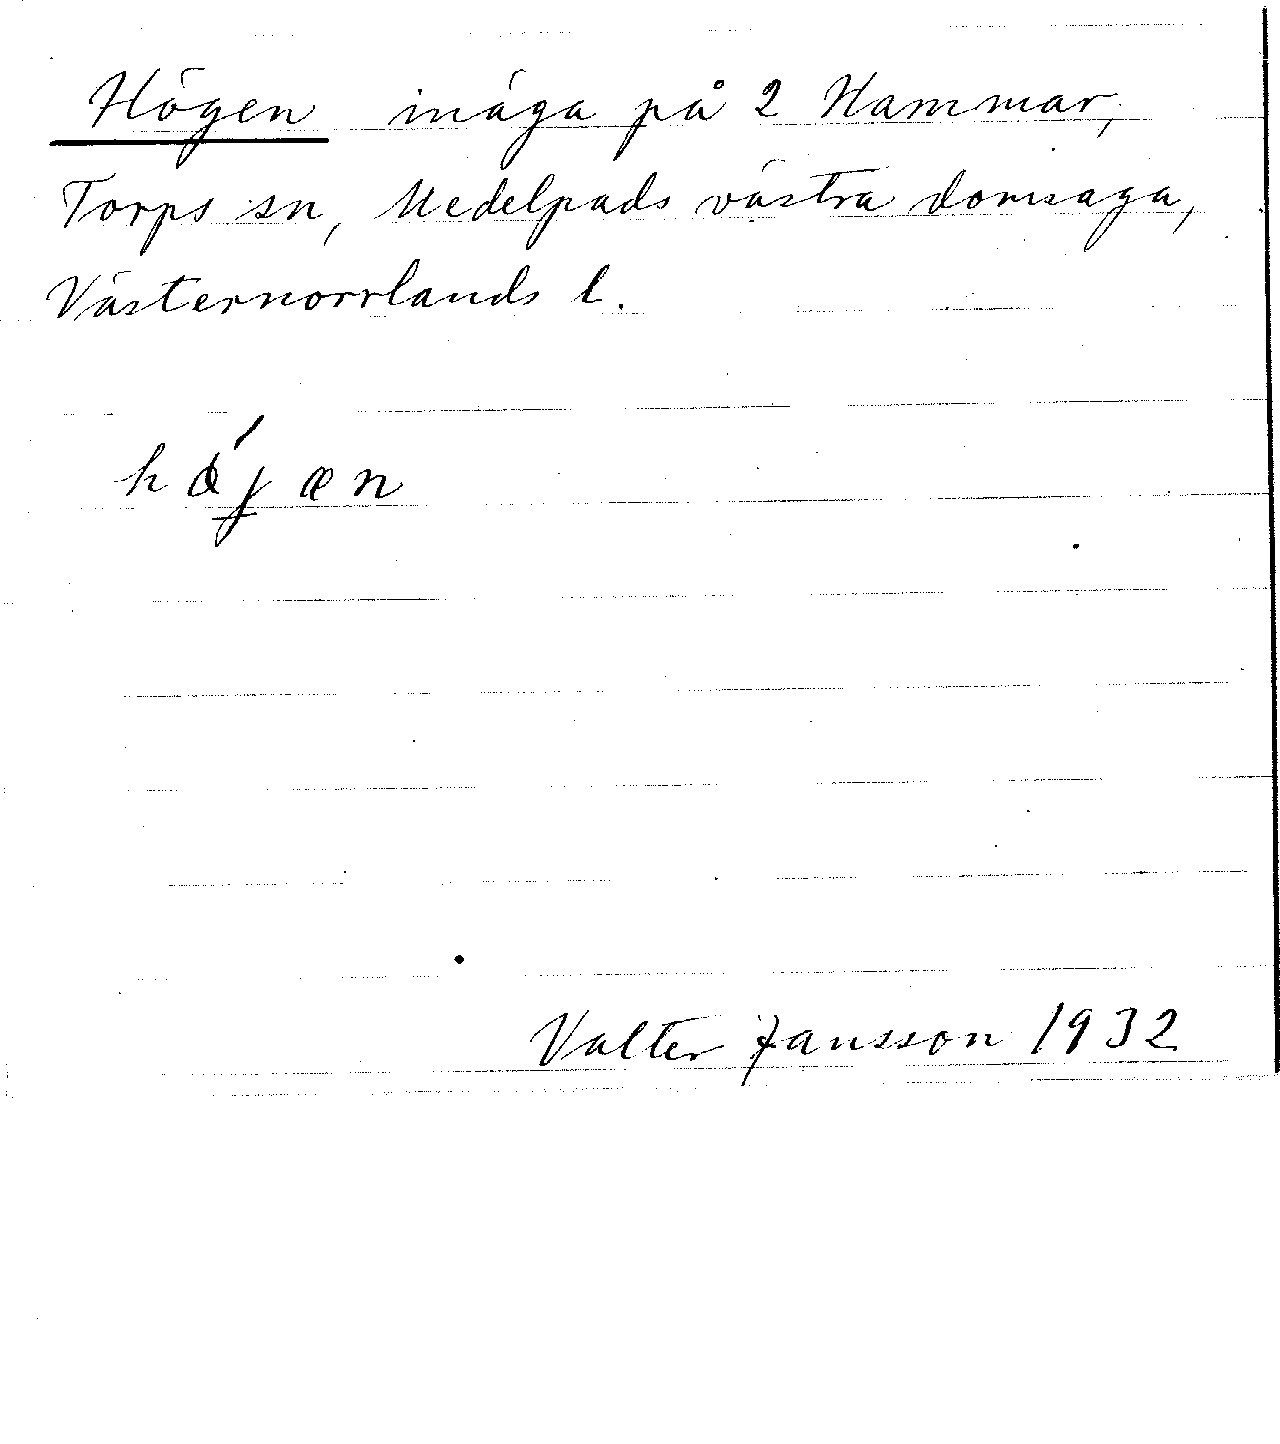 Högen inäga på 2 Hammar,
Torps sn, Medelpads västra domsaga,
Västernorrlands l.
Valter Jansson 1932